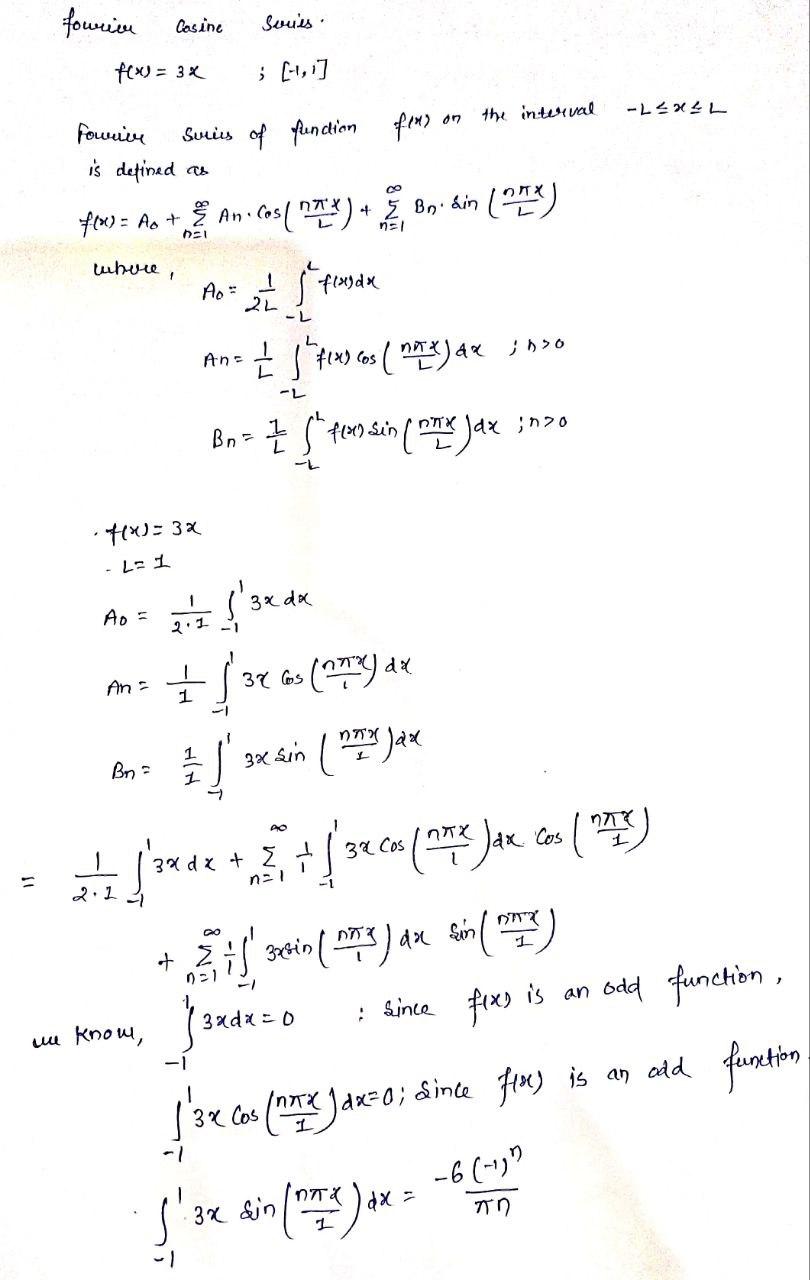 fourier Cosine Series.
f(x) = 3x ; [-1,1]
Fourier Series of function f(x) on the interval -L≤x≤L
is defined as
f(x) = A₀ + ∑_{n=1}^{∞} An · Cos(nπx/L) + ∑_{n=1}^{∞} Bn · Sin(nπx/L)
where,
A₀ = 1/2L ∫_{-L}^{L} f(x)dx
An = 1/L ∫_{-L}^{L} f(x) Cos(nπx/L) dx ; n>0
Bn = 1/L ∫_{-L}^{L} f(x) Sin(nπx/L) dx ; n>0
· f(x) = 3x
- L = 1
A₀ = 1/2·1 ∫_{-1}^{1} 3x dx
An = 1/1 ∫_{-1}^{1} 3x Cos(nπx/1) dx
Bn = 1/1 ∫_{-1}^{1} 3x Sin(nπx/1) dx
= 1/2·1 ∫_{-1}^{1} 3x dx + ∑_{n=1}^{∞} 1/1 ∫_{-1}^{1} 3x Cos(nπx/1) dx Cos(nπx/1)
+ ∑_{n=1}^{∞} 1/1 ∫_{-1}^{1} 3x sin(nπx/1) dx Sin(nπx/1)
we know, ∫_{-1}^{1} 3x dx = 0 : Since f(x) is an odd function,
∫_{-1}^{1} 3x Cos(nπx/1) dx = 0 ; Since f(x) is an odd function.
· ∫_{-1}^{1} 3x Sin(nπx/1) dx = -6(-1)ⁿ/πn